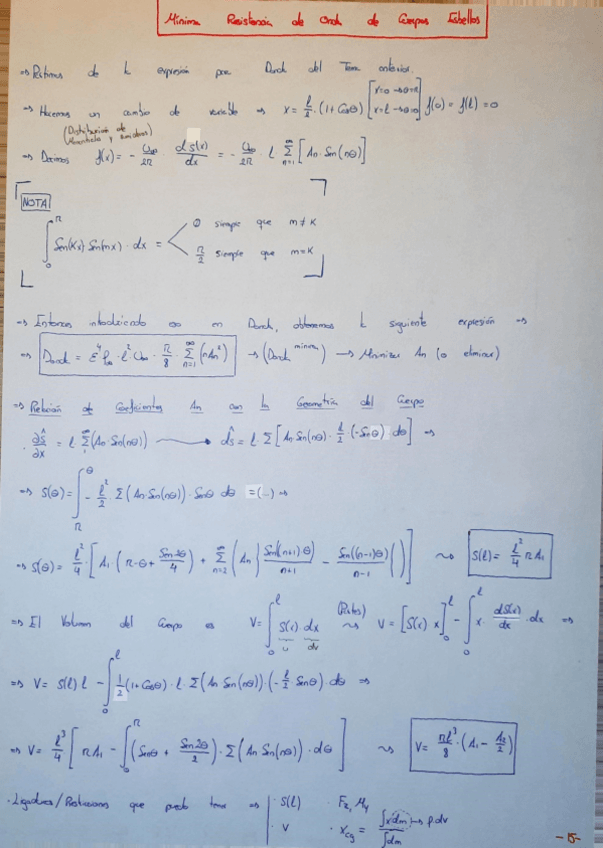 Mínima Resistencia de Onda de Cuerpos Esbeltos
⇒ Partimos de la expresión para Donda del Tema anterior.
⇒ Hacemos un cambio de variable ⇒ x = l/2 · (1 + Cosθ) [x=0 → θ=π; x=l → θ=0] f(0) = f(l) = 0
(Distribución de
⇒ Decimos f(x) = - U∞/2π · dS(x)/dx = - U∞/2π · l · Σ_{n=1}^{∞} [An · Sen(nθ)]
NOTA
∫_0^π Sen(Kx) Sen(mx) · dx = 0 siempre que m ≠ K
π/2 siempre que m = K
⇒ Entonces introduciendo en Donda, obtenemos la siguiente expresión ⇒
⇒ Donda = ε⁴ ρ∞ · l² U∞ · π/8 · Σ_{n=1}^{∞} (nAn²) → (Donda mínima) → Minimizar An (o eliminar)
⇒ Relación de Coeficientes An con la Geometría del Cuerpo
· ∂Ŝ/∂x = l Σ_1^∞ (An · Sen(nθ)) → dŜ = l · Σ [An · Sen(nθ) · l/2 · (-Senθ) dθ] ⇒
⇒ S(θ) = ∫_π^θ - l²/2 Σ (An · Sen(nθ)) · Senθ dθ = (...) ⇒
⇒ S(θ) = l²/4 · [A₁ (π - θ + Sen2θ/4) + Σ_{n=2}^{∞} (An { Sen((n+1)θ)/n+1 - Sen((n-1)θ)/n-1 ( )] ⤳ S(l) = l²/4 π A₁
⇒ El Volumen del Cuerpo es V = ∫_0^l S(x) dx (Partes) ⤳ V = [S(x) x]_0^l - ∫_0^l x · dS(x)/dx · dx ⇒
u dv
⇒ V = S(l) l - ∫_0^l 1/2 (1 + Cosθ) · l · Σ (An Sen(nθ)) · (- l/2 Senθ) · dθ ⇒
⇒ V = l³/4 [π A₁ - ∫_0^π (Senθ + Sen2θ/2) · Σ (An Sen(nθ)) · dθ] ⤳ V = πl³/8 · (A₁ - A₂/2)
· Ligaduras/Restricciones que puedo tener ⇒ · S(l) · Fz, My
· V · Xcg = ∫x dm/∫dm → ρ dv
- 15 -